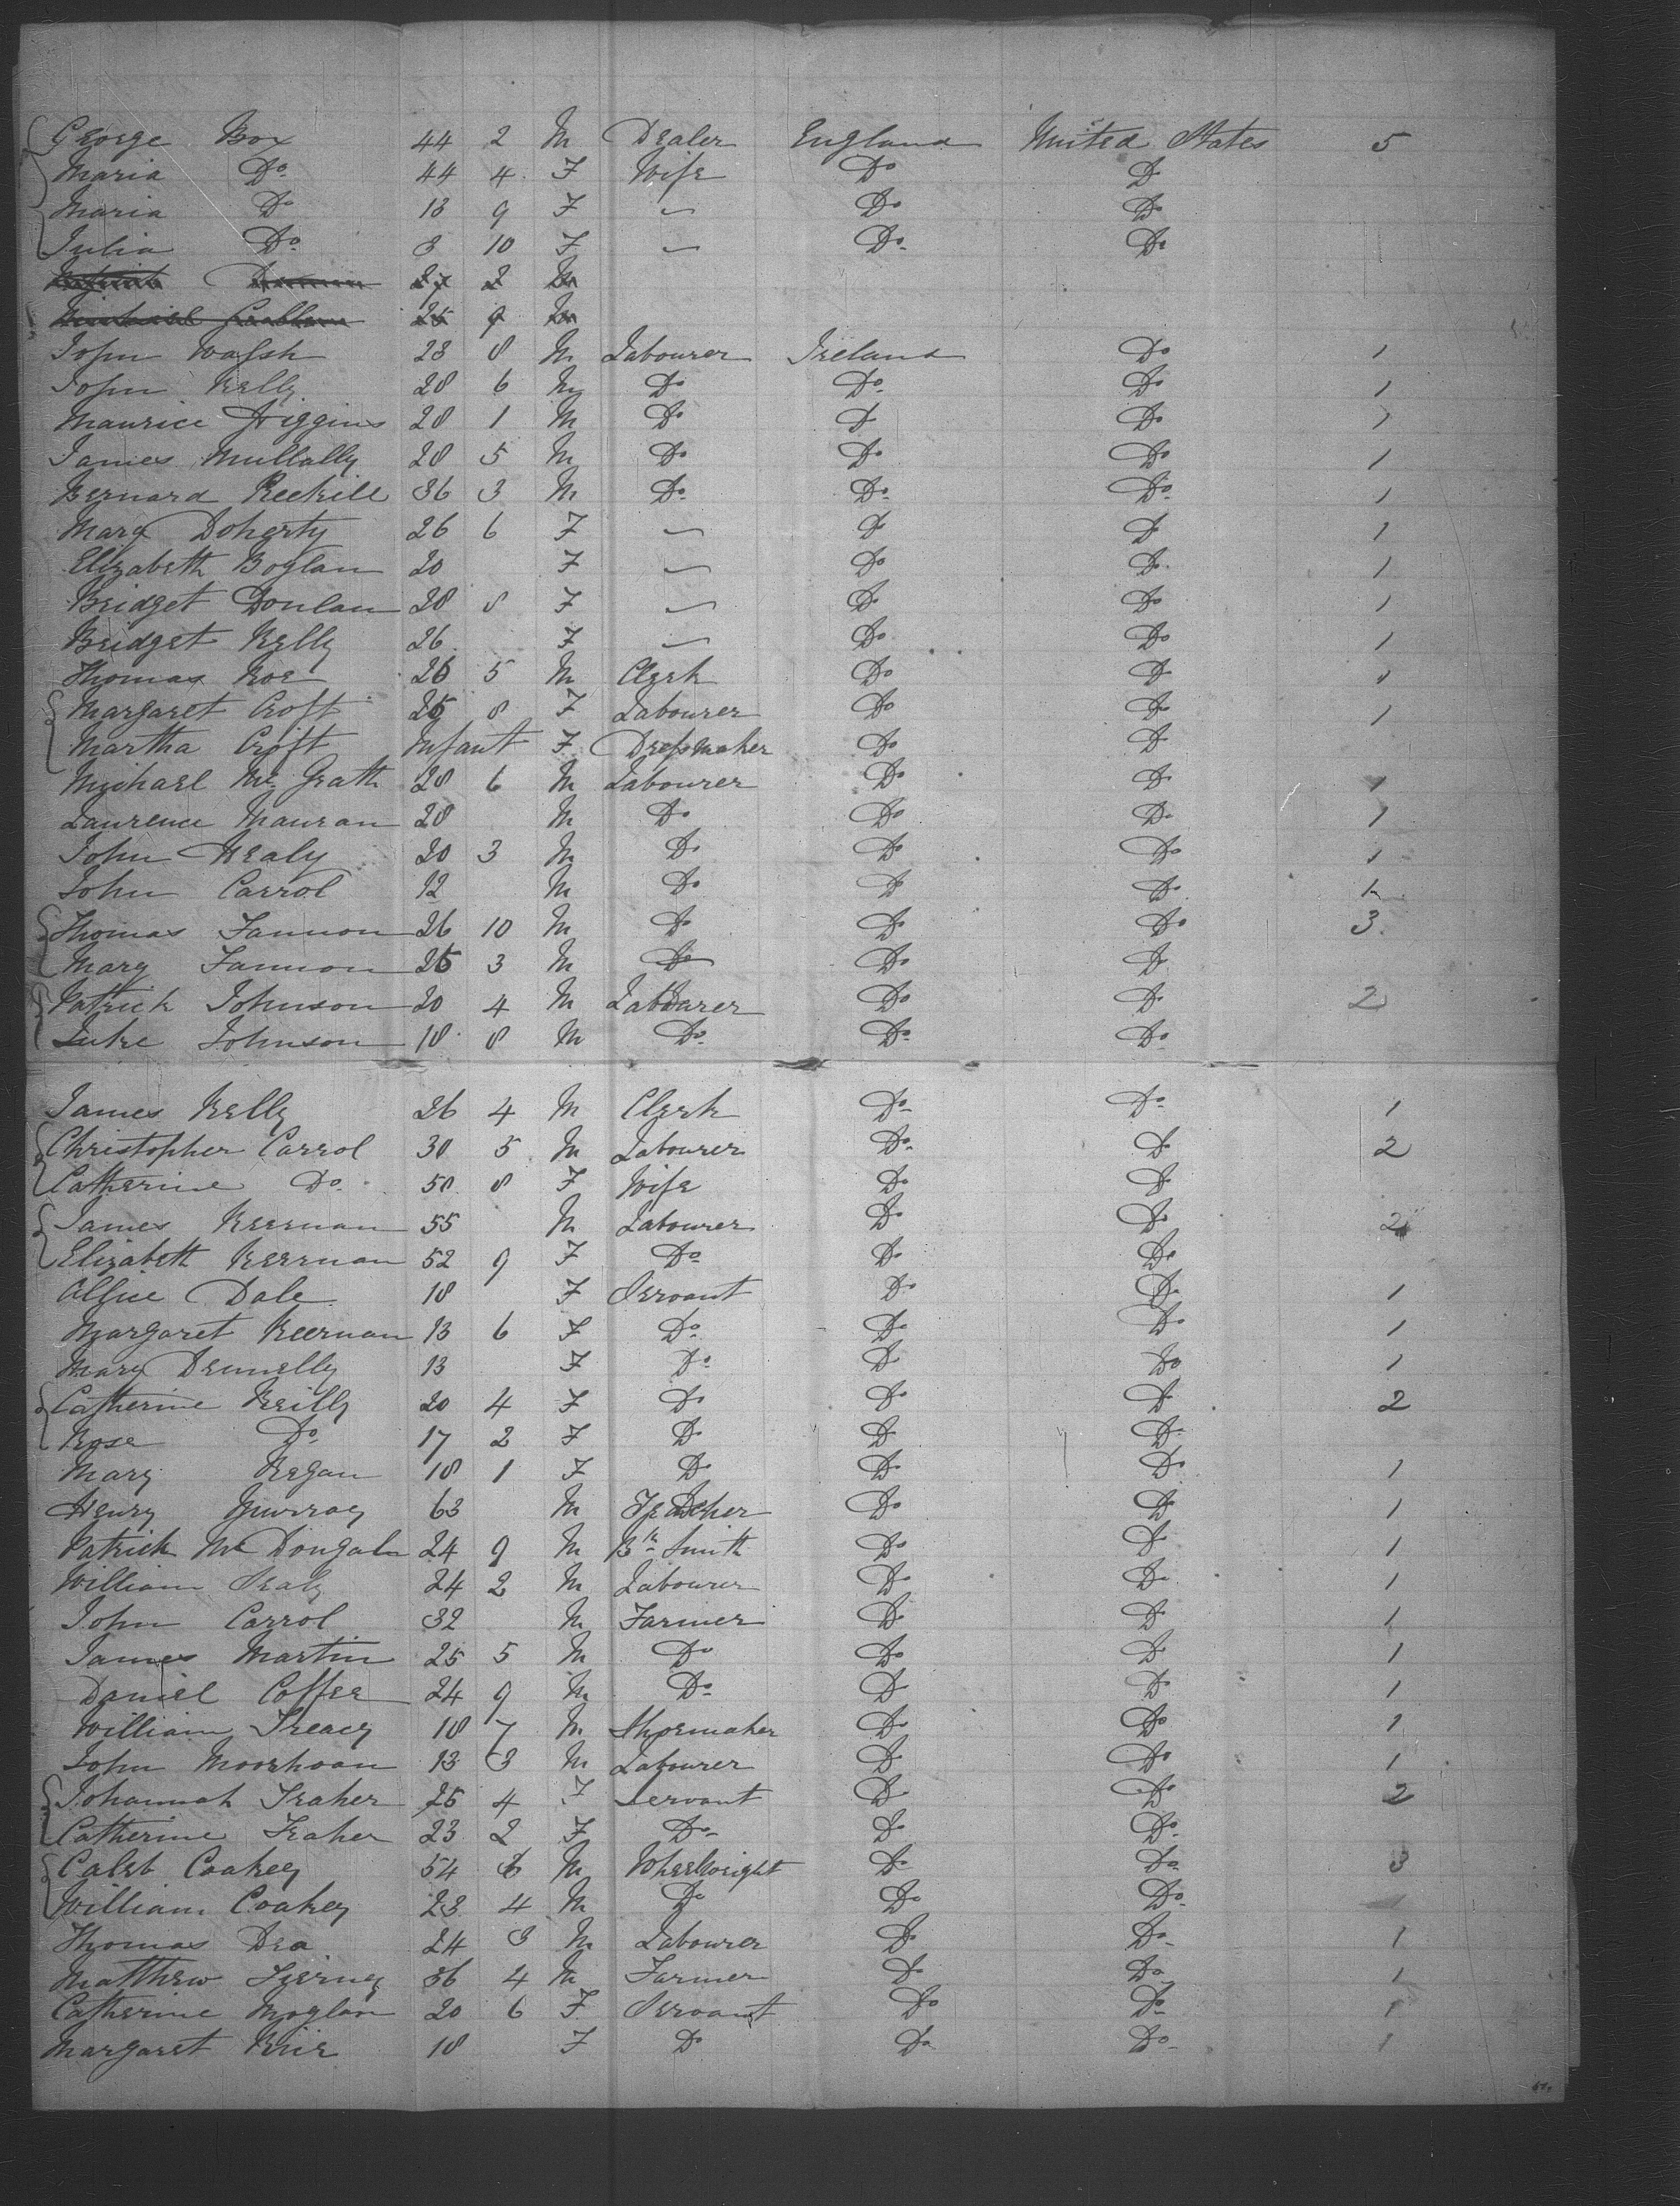 George Box 44 2 M Dealer England United States 5
Maria Do 44 4 F Wife Do Do
Maria Do 13 9 F " Do Do
Julia Do 8 10 F " Do Do
27 2 M
Michael 25 9 M
John Walsh 23 8 M Labourer Ireland Do 1
John Kelly 28 6 M Do Do Do 1
Maurice Higgins 28 1 M Do Do Do 1
James Mullally 28 5 M Do Do Do 1
Bernard 36 3 M Do Do Do 1
Mary Doherty 26 6 F " Do Do 1
Elizabeth Boglan 20 F " Do Do 1
Bridget Donlan 28 8 F " Do Do 1
Bridget Kelly 26 F " Do Do 1
Thomas Roe 26 5 M Clerk Do Do 1
Margaret Croft 25 8 F Labourer Do Do 1
Martha Croft Infant F Dressmaker Do Do
Michael McGrath 28 6 M Labourer Do Do 1
Laurence 28 M Do Do Do 1
John Healy 20 3 M Do Do Do 1
John Carrol 12 M Do Do Do 1
Thomas Fannon 26 10 M Do Do Do 3
Mary Fannon 25 3 M Do Do Do
Patrick Johnson 20 4 M Labourer Do Do 2
Luke Johnson 18 8 M Do Do Do
James Kelly 26 4 M Clerk Do Do 1
Christopher Carrol 30 5 M Labourer Do Do 2
Catherine Do 50 8 F Wife Do Do
James Keernan 55 M Labourer Do Do 2
Elizabeth Keernan 52 9 F Do Do Do
Dale 18 F Servant Do Do 1
Margaret Keernan 13 6 F Do Do Do 1
Mary Dennelly 13 F Do Do Do 1
Catherine Reilly 20 4 F Do Do Do 2
Rose Do 17 2 F Do Do Do
Mary Regan 18 1 F Do Do Do 1
Henry Murray 63 M Teacher Do Do 1
Patrick McDougal 24 9 M Bk Smith Do Do 1
William Healy 24 2 M Labourer Do Do 1
John Carrol 32 M Farmer Do Do 1
James Martin 25 5 M Do Do Do 1
Daniel Coffee 24 9 M Do Do Do 1
William Treacy 18 7 M Shoemaker Do Do 1
John Moorhoan 13 3 M Labourer Do Do 1
Johannah Fraher 25 4 F Servant Do Do 2
Catherine Fraher 23 2 F Do Do Do
Caleb Coakey 54 M Wheelwright Do Do 3
William Coakey 23 4 M Do Do Do 1
Thomas Dea 24 3 M Labourer Do Do 1
Matthew Tierney 36 4 M Farmer Do Do 1
Catherine Moglan 20 6 F Servant Do Do 1
Margaret 18 F Do Do Do 1